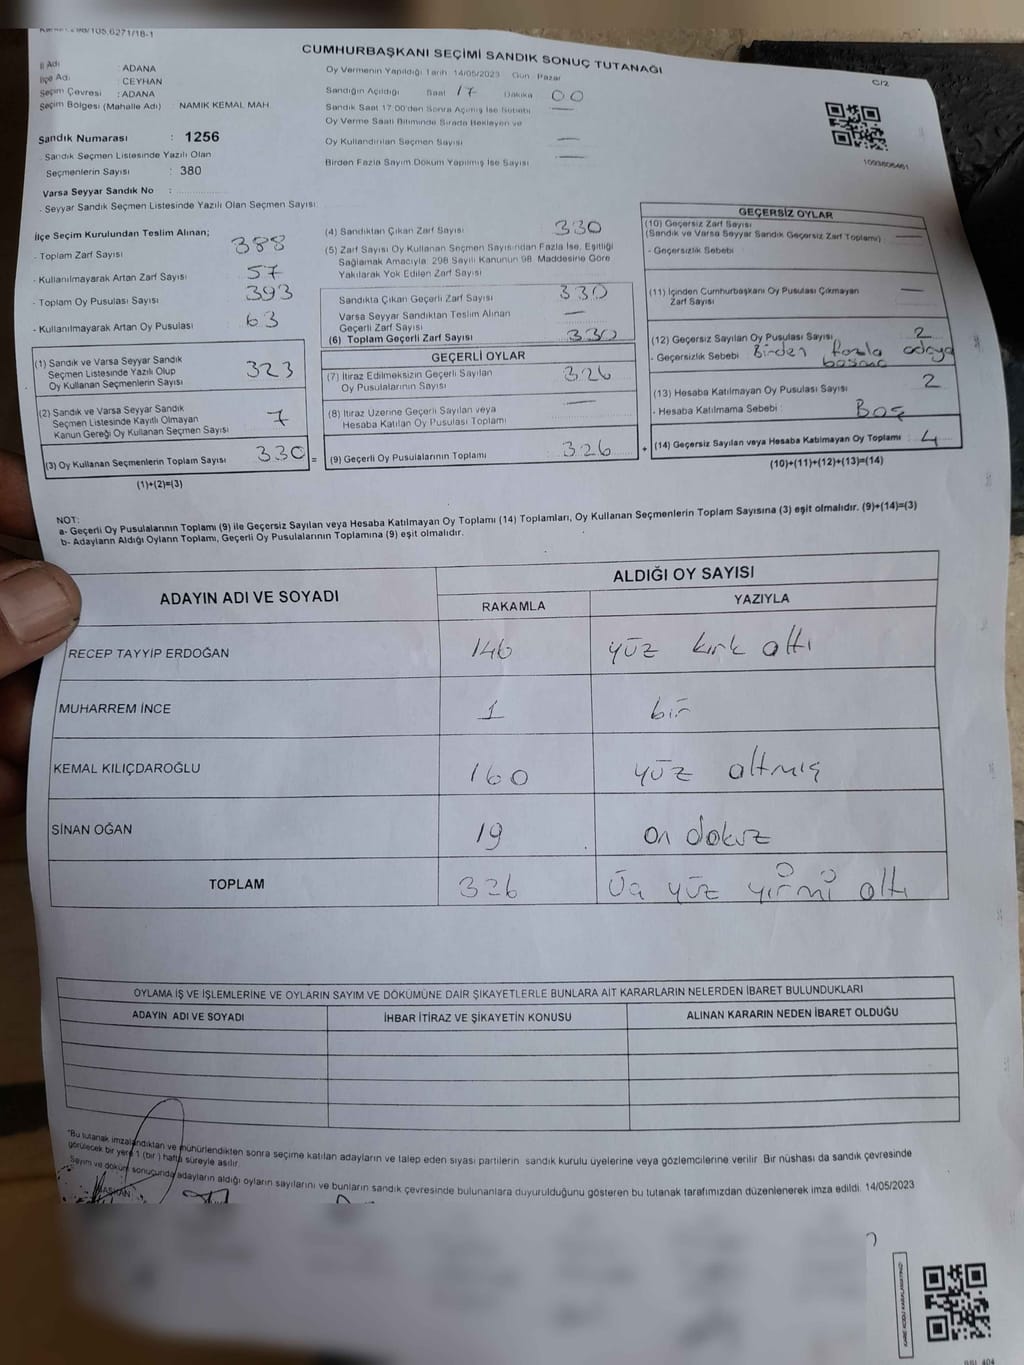 CUMHURBAŞKANI SEÇİMİ SANDIK SONUÇ TUTANAĞI
C/2
İl Adı : ADANA
İlçe Adı : CEYHAN
Seçim Çevresi : ADANA
Seçim Bölgesi (Mahalle Adı) : NAMIK KEMAL MAH.
Sandık Numarası : 1256
Sandık Seçmen Listesinde Yazılı Olan
Seçmenlerin Sayısı : 380
Varsa Seyyar Sandık No :
- Seyyar Sandık Seçmen Listesinde Yazılı Olan Seçmen Sayısı:
Oy Vermenin Yapıldığı Tarih: 14/05/2023 Gün: Pazar
Sandığın Açıldığı Saat 17 Dakika 00
Sandık Saat 17:00'den Sonra Açılmış İse Sebebi —
Oy Verme Saati Bitiminde Sırada Bekleyen ve
Oy Kullandırılan Seçmen Sayısı —
Birden Fazla Sayım Döküm Yapılmış İse Sayısı —
1093606461
İlçe Seçim Kurulundan Teslim Alınan;
- Toplam Zarf Sayısı 388
- Kullanılmayarak Artan Zarf Sayısı 57
- Toplam Oy Pusulası Sayısı 393
- Kullanılmayarak Artan Oy Pusulası 63
(1) Sandık ve Varsa Seyyar Sandık
Seçmen Listesinde Yazılı Olup
Oy Kullanan Seçmenlerin Sayısı 323
(2) Sandık ve Varsa Seyyar Sandık
Seçmen Listesinde Kayıtlı Olmayan
Kanun Gereği Oy Kullanan Seçmen Sayısı 7
(3) Oy Kullanan Seçmenlerin Toplam Sayısı 330 =
(1)+(2)=(3)
(4) Sandıktan Çıkan Zarf Sayısı 330
(5) Zarf Sayısı Oy Kullanan Seçmen Sayısından Fazla İse, Eşitliği
Sağlamak Amacıyla 298 Sayılı Kanunun 98. Maddesine Göre
Yakılarak Yok Edilen Zarf Sayısı
Sandıkta Çıkan Geçerli Zarf Sayısı 330
Varsa Seyyar Sandıktan Teslim Alınan
Geçerli Zarf Sayısı —
(6) Toplam Geçerli Zarf Sayısı 330
GEÇERLİ OYLAR
(7) İtiraz Edilmeksizin Geçerli Sayılan
Oy Pusulalarının Sayısı 326
(8) İtiraz Üzerine Geçerli Sayılan veya
Hesaba Katılan Oy Pusulası Toplamı —
(9) Geçerli Oy Pusulalarının Toplamı 326 +
GEÇERSİZ OYLAR
(10) Geçersiz Zarf Sayısı
(Sandık ve Varsa Seyyar Sandık Geçersiz Zarf Toplamı) : —
- Geçersizlik Sebebi :
(11) İçinden Cumhurbaşkanı Oy Pusulası Çıkmayan
Zarf Sayısı —
(12) Geçersiz Sayılan Oy Pusulası Sayısı 2
- Geçersizlik Sebebi : Birden fazla adaya
basma
(13) Hesaba Katılmayan Oy Pusulası Sayısı 2
- Hesaba Katılmama Sebebi : Boş
(14) Geçersiz Sayılan veya Hesaba Katılmayan Oy Toplamı : 4
(10)+(11)+(12)+(13)=(14)
NOT:
a- Geçerli Oy Pusulalarının Toplamı (9) ile Geçersiz Sayılan veya Hesaba Katılmayan Oy Toplamı (14) Toplamları, Oy Kullanan Seçmenlerin Toplam Sayısına (3) eşit olmalıdır. (9)+(14)=(3)
b- Adayların Aldığı Oyların Toplamı, Geçerli Oy Pusulalarının Toplamına (9) eşit olmalıdır.
ADAYIN ADI VE SOYADI ALDIĞI OY SAYISI
RAKAMLA YAZIYLA
RECEP TAYYİP ERDOĞAN 146 yüz kırk altı
MUHARREM İNCE 1 bir
KEMAL KILIÇDAROĞLU 160 yüz altmış
SİNAN OĞAN 19 on dokuz
TOPLAM 326 Üç yüz yirmi altı
OYLAMA İŞ VE İŞLEMLERİNE VE OYLARIN SAYIM VE DÖKÜMÜNE DAİR ŞİKAYETLERLE BUNLARA AİT KARARLARIN NELERDEN İBARET BULUNDUKLARI
ADAYIN ADI VE SOYADI İHBAR İTİRAZ VE ŞİKAYETİN KONUSU ALINAN KARARIN NEDEN İBARET OLDUĞU
"Bu tutanak imzalandıktan ve mühürlendikten sonra seçime katılan adayların ve talep eden siyasi partilerin sandık kurulu üyelerine veya gözlemcilerine verilir. Bir nüshası da sandık çevresinde
görülecek bir yere 1 (bir) hafta süreyle asılır.
Sayım ve döküm sonucunda adayların aldığı oyların sayılarını ve bunların sandık çevresinde bulunanlara duyurulduğunu gösteren bu tutanak tarafımızdan düzenlenerek imza edildi. 14/05/2023
BAŞKAN